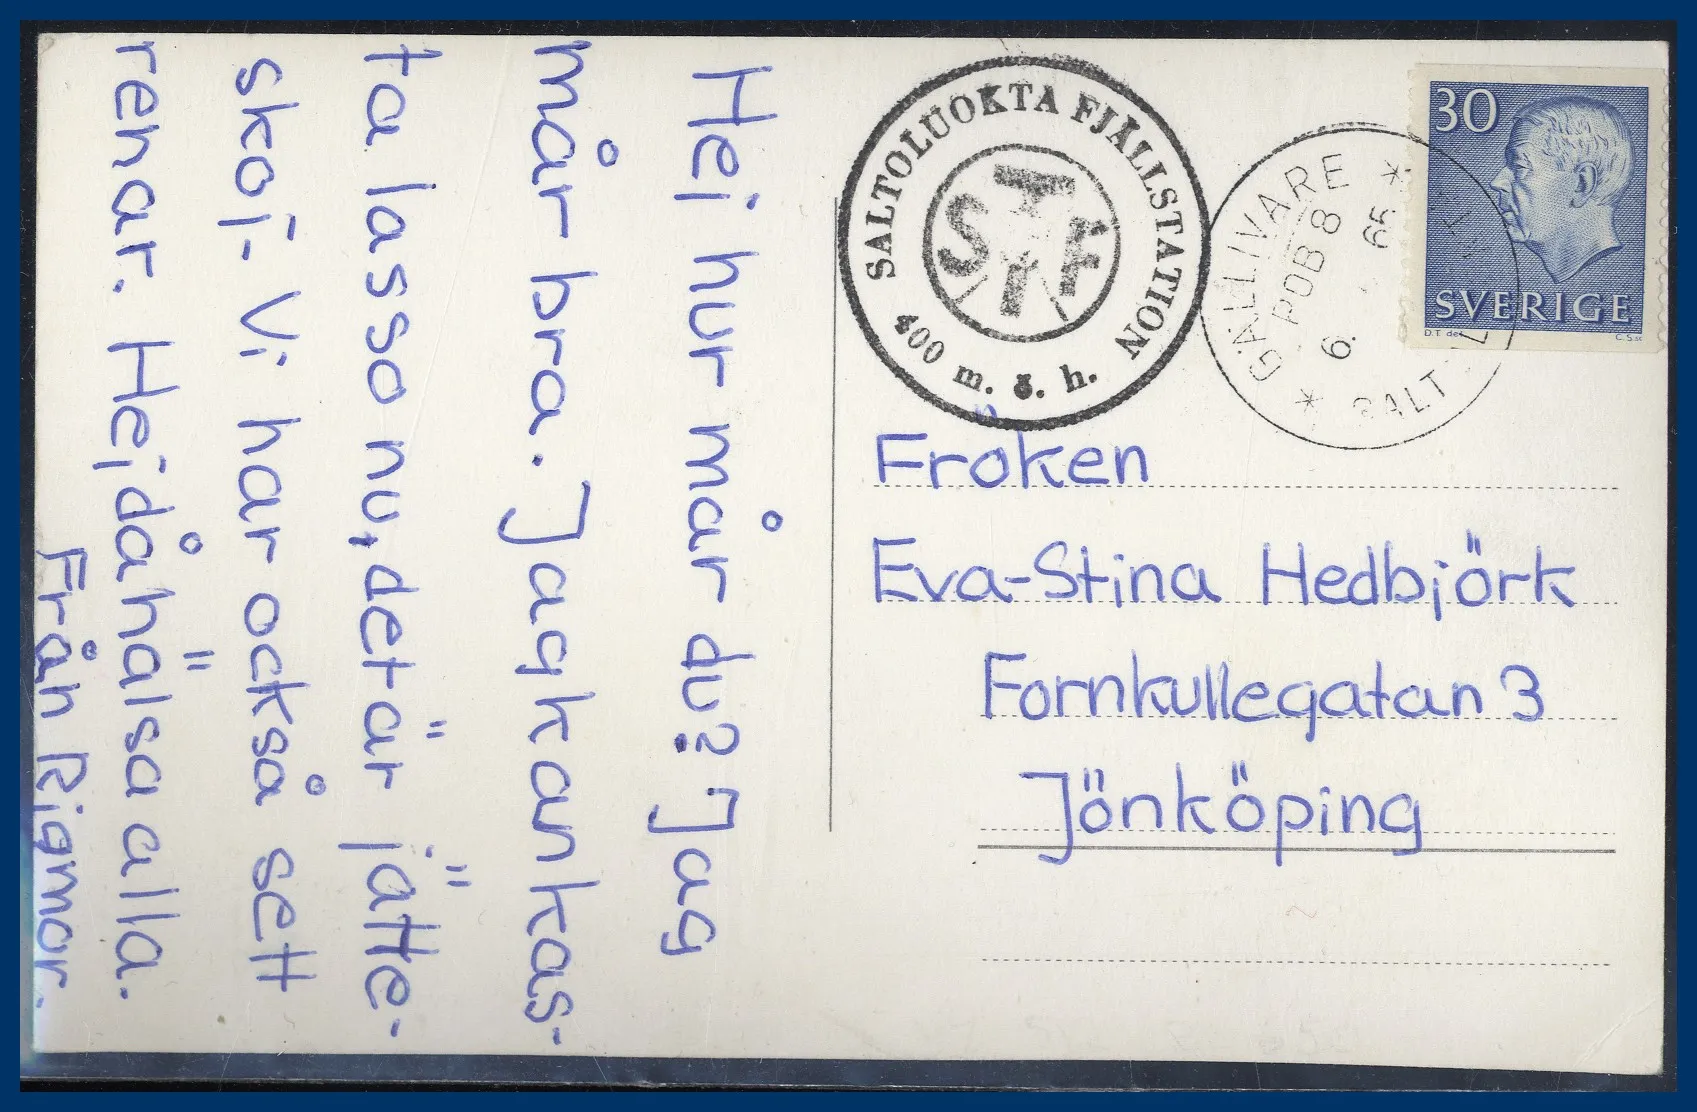 Hej hur mår du? Jag
mår bra. Jag kan kas-
ta lasso nu, det är jätte-
skoj- Vi har också sett
renar. Hejdå hälsa alla.
Från Rigmor.
SALTOLUOKTA FJÄLLSTATION
400 m. ö. h.
STF
* GÄLLIVARE *
POB 8
6. 65
SALT
30
SVERIGE
D.T. del
C.S. sc
Fröken
Eva-Stina Hedbjörk
Fornkullegatan 3
Jönköping